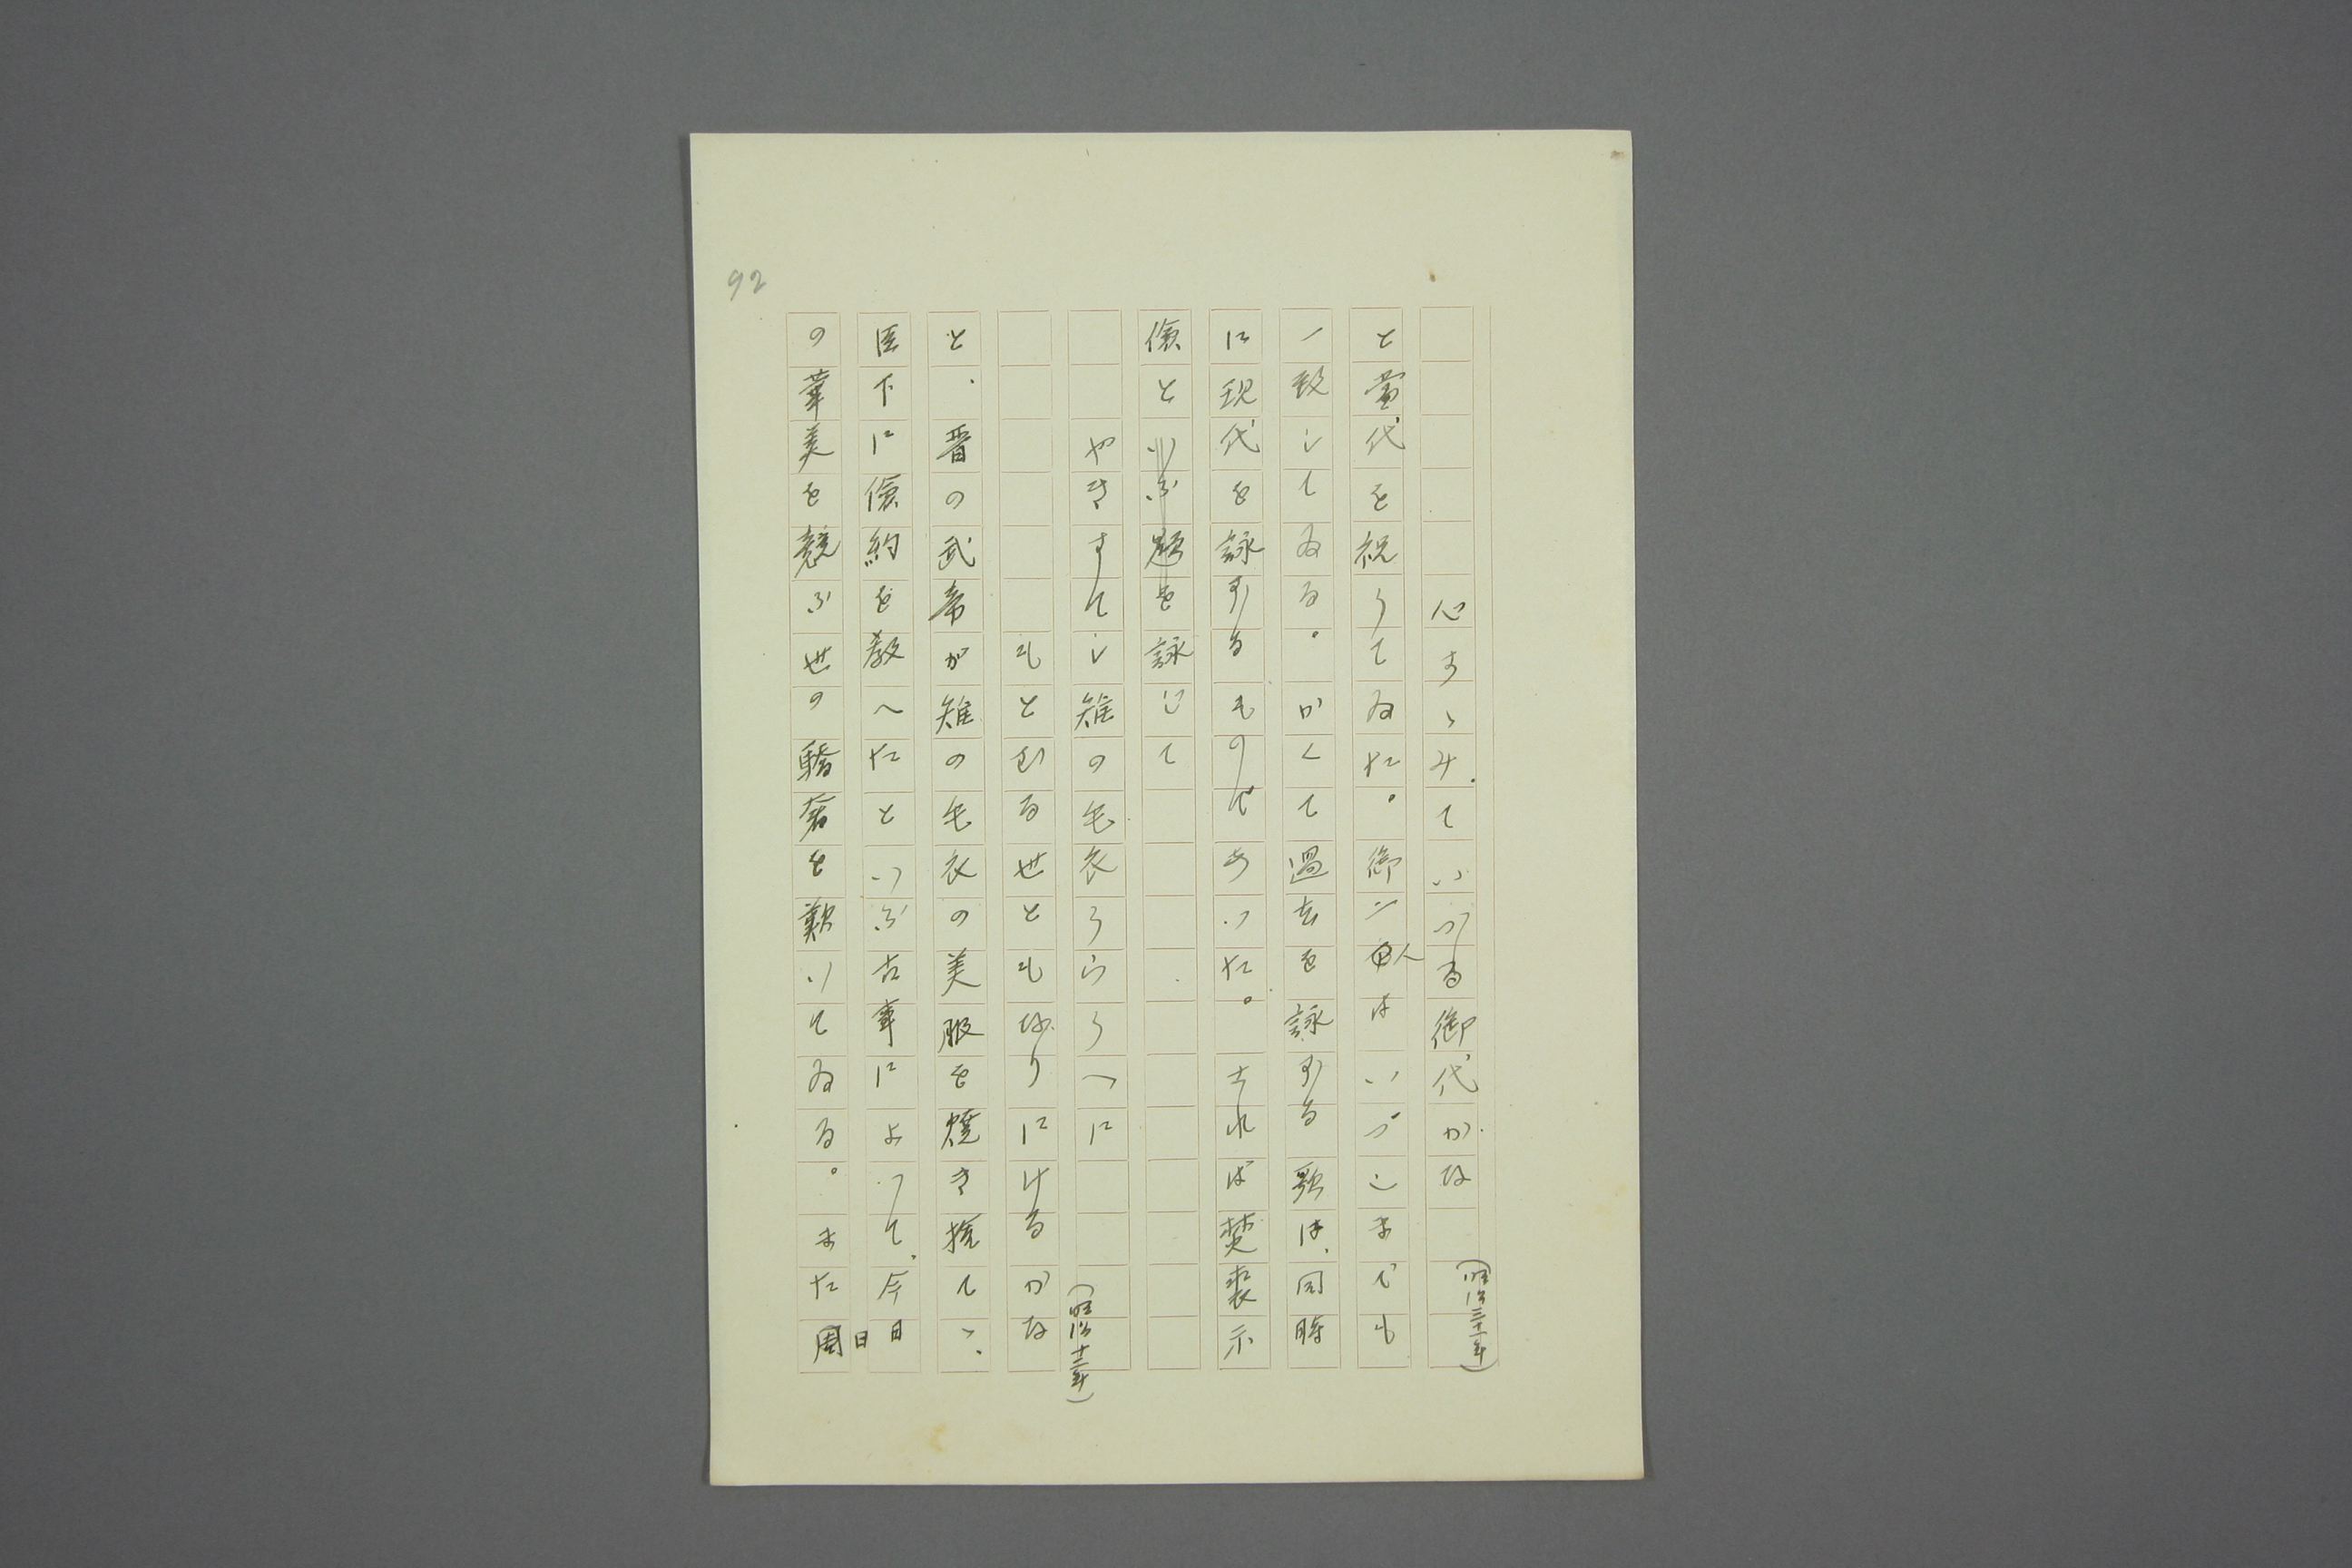 92
心すゝみていつる御代かな（明治三十一年）
と當代を祝うてゐた。御はいづこまでも
一致してゐる。かくて過去を詠ずる歌は、同時
に現代を詠ずるものであつた。されば焚裘示
儉といふ題を詠じて
やきすてし雉の毛衣うらうへに（明治十二年）
もとむる世ともなりにけるかな
と、晋の武帝が雉の毛衣の美服を焼き捨てゝ、
臣下に儉約を教へたといふ古事によつて、今日
の華美を競ふ世の驕奢を歎いてゐる。また周